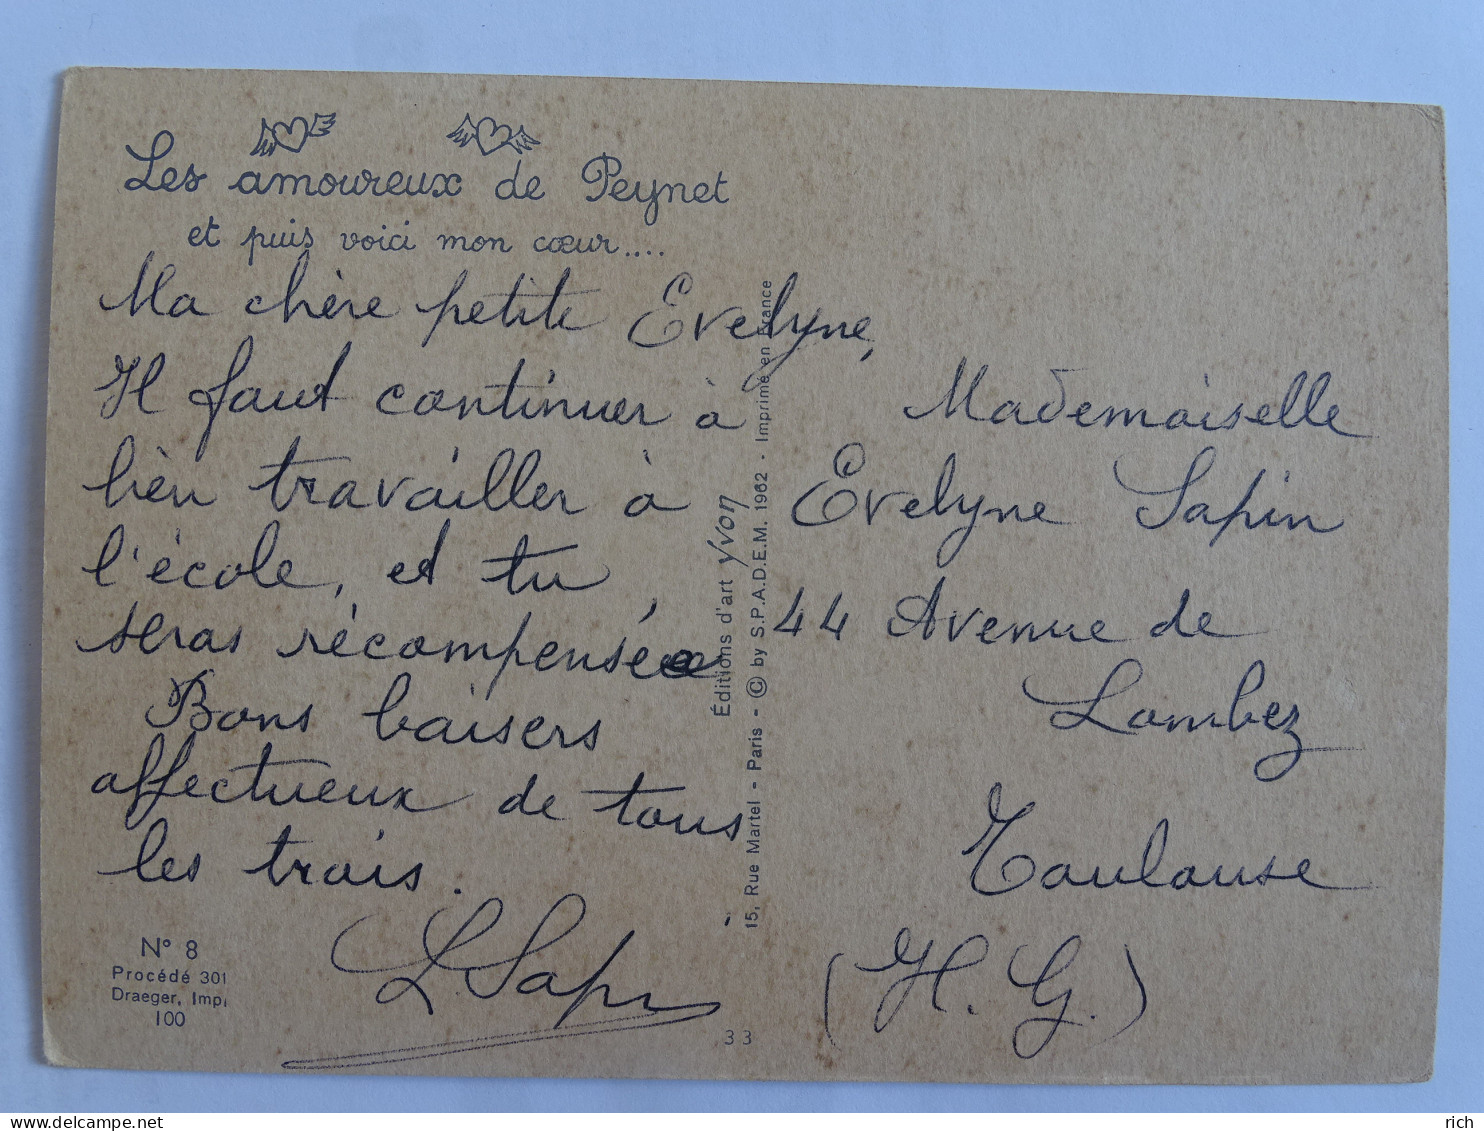 Les amoureux de Peynet
et puis voici mon cœur....
Ma chère petite Evelyne,
Il faut continuer à
bien travailler à
l'école, et tu
seras récompensée
Bons baisers
affectueux de tous
les trois.
L Sapin
N° 8
Procédé 301
Draeger, Impr
100
Éditions d'art Yvon
15, Rue Martel - Paris - © by S.P.A.D.E.M. 1962 - Imprimé en France
33
Mademoiselle
Evelyne Sapin
44 Avenue de
Lombez
Toulouse
(H. G.)
rich